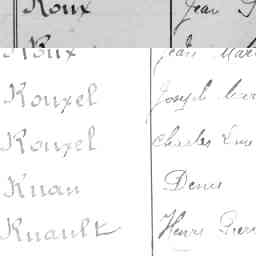 Roux Jean
Roux Jean Mari
Rouxel Joseph
Rouxel Charles
Ruau Denis
Ruault Henri Pierr